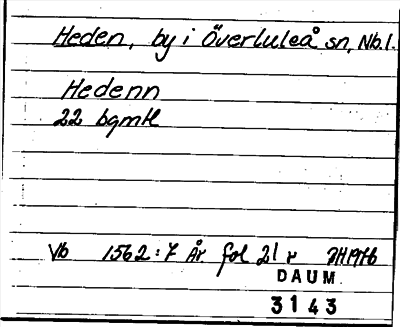 Heden, by i Överluleå sn, Nb.l.
Hedenn
22 bgmtl
Vb 1562:7 År fol 21 r JH1976
DAUM
3143